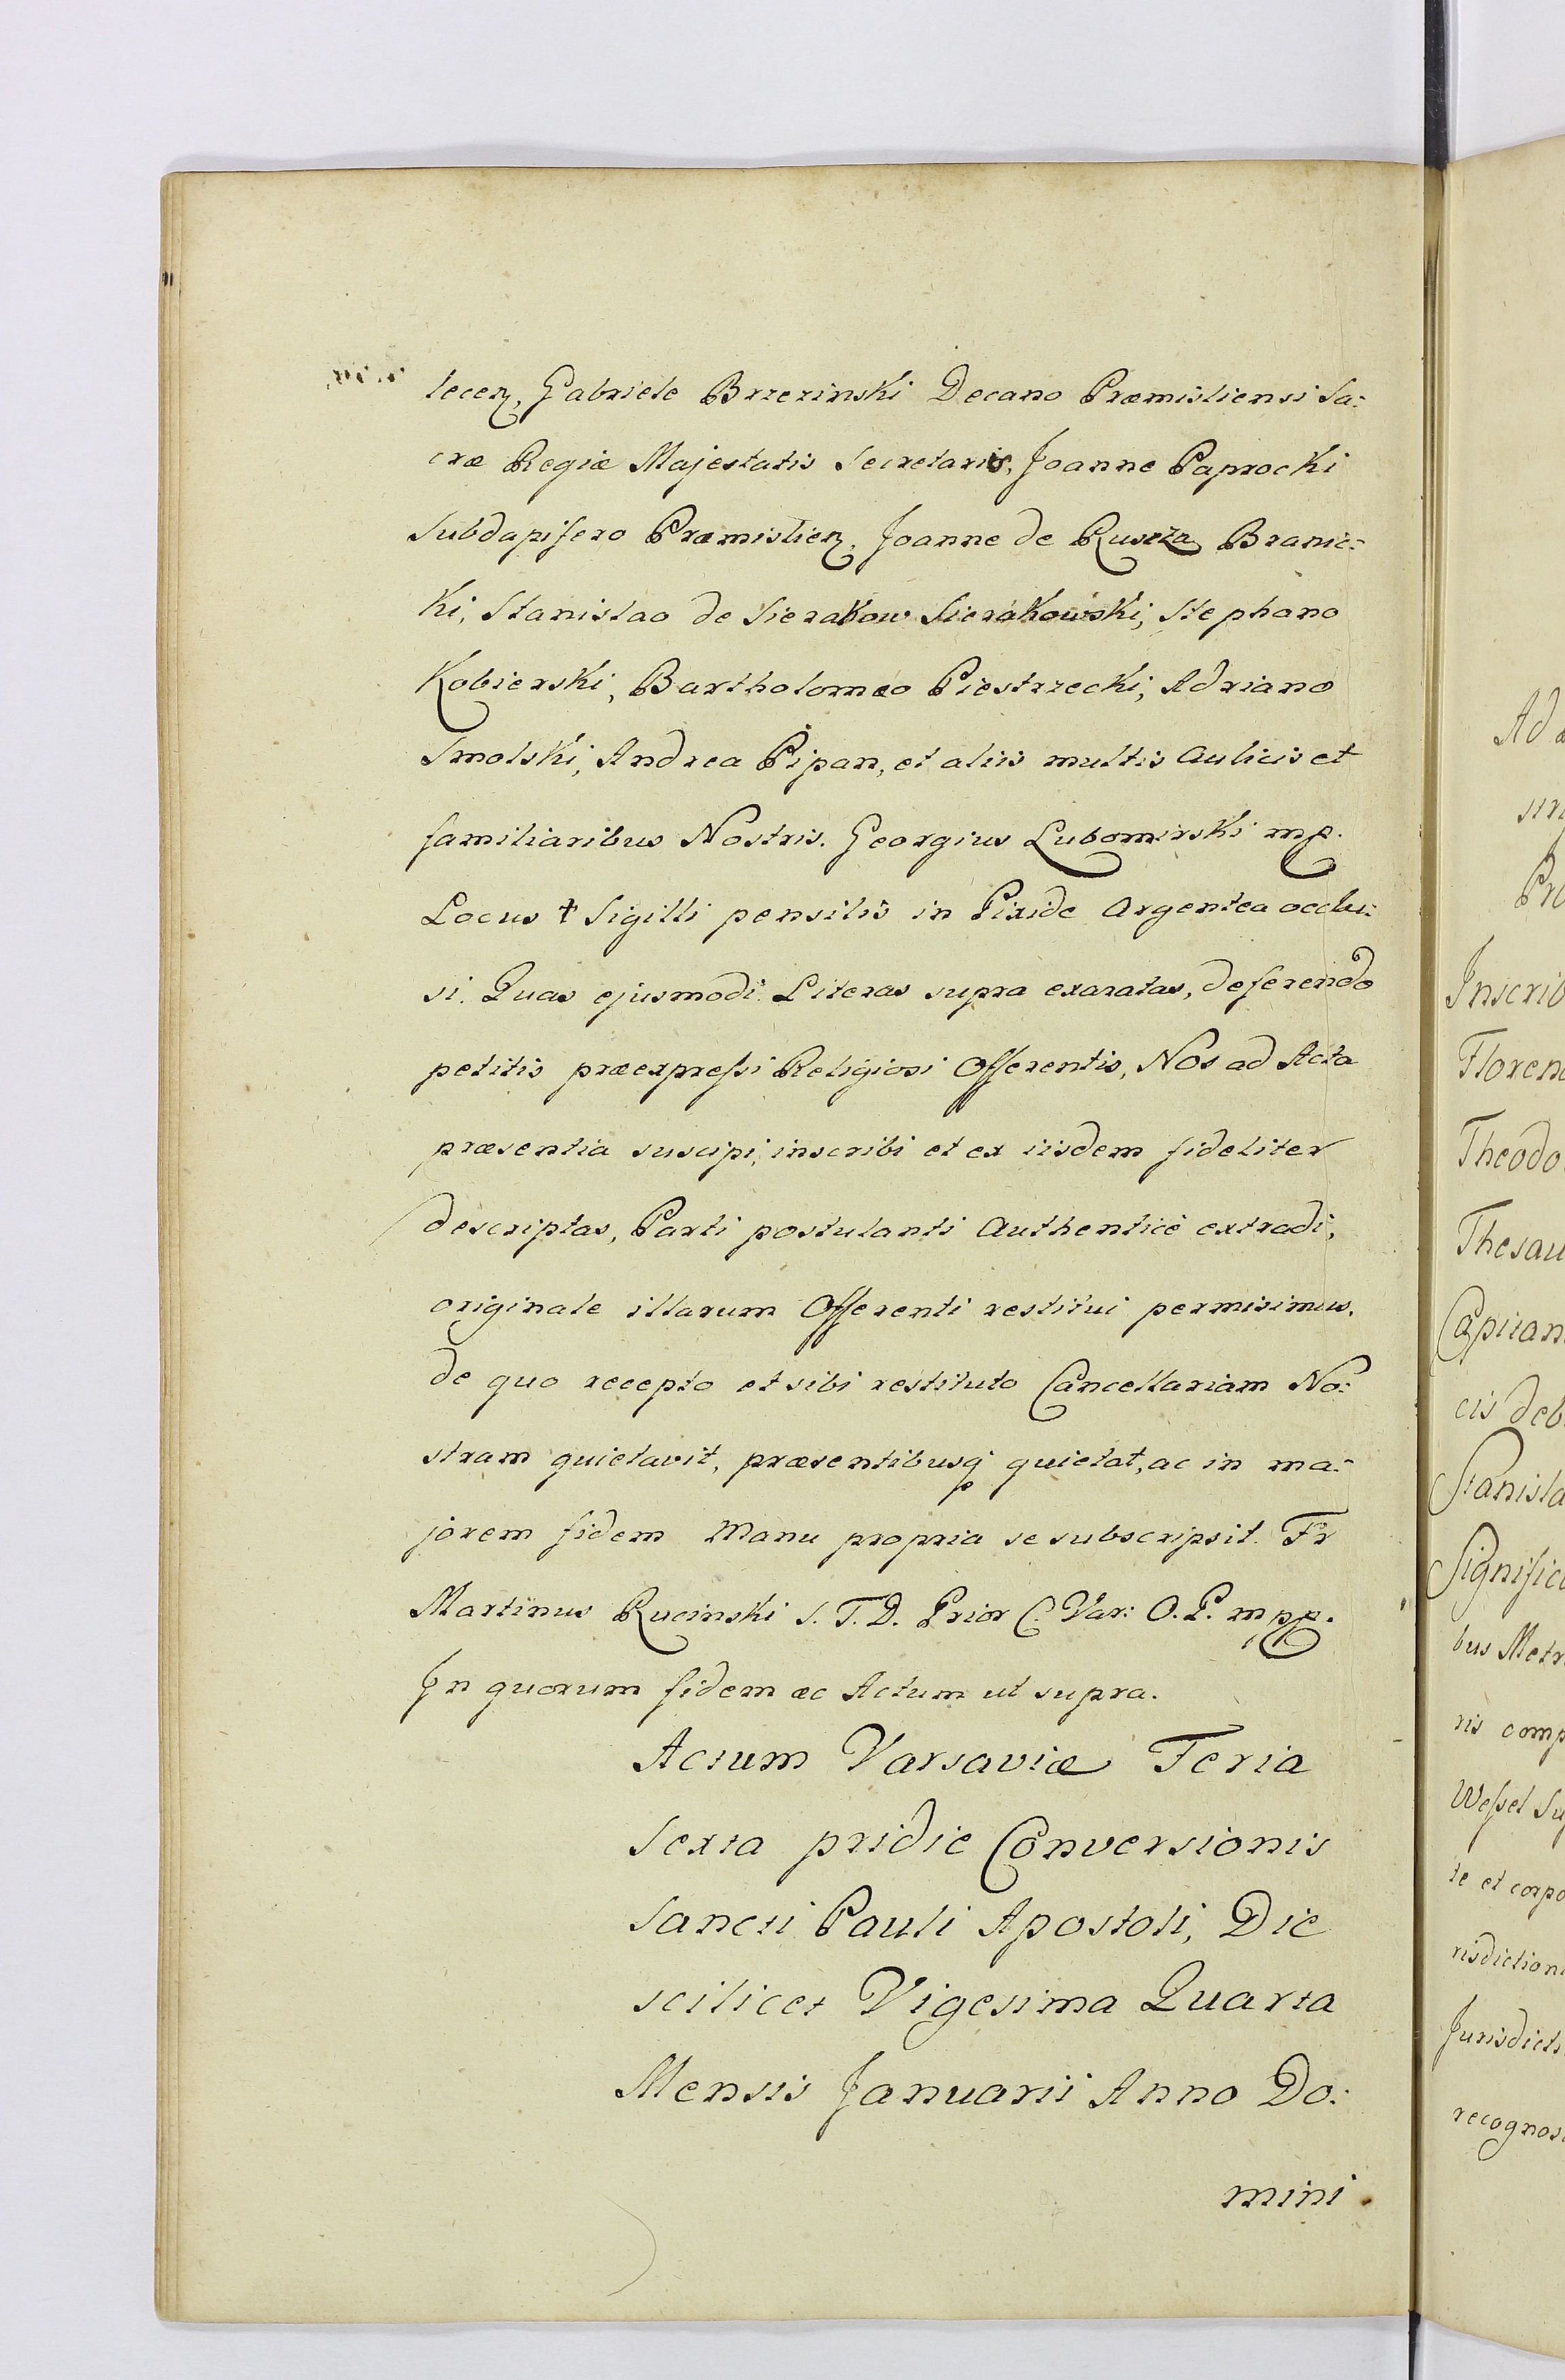 lecen, Gabriele Brzezinski Decano Præmisliensi Sa:
cræ Regiæ Majestatis Secretario, Joanne Paprocki
Subdapifero Præmislien, Joanne de Ruszcza Branic:
ki, Stanislao de Sierakow Sierakowski, Stephano
Kobierski, Bartholomæo Piestrzecki, Adriano
Smolski, Andrea Pipan, et aliis multis Aulicis et
familiaribus Nostris. Georgius Lubomirski mp.
Locus † Sigilli pensilis in Pixide Argentea occlu:
si. Quas ejusmodi Literas supra exaratas, deferendo
petitis præexpressi Religiosi Offerentis, Nos ad Acta
præsentia suscipi, inscribi et ex iisdem fideliter
descriptas, Parti postulanti Authenticè extradi,
originale illarum Offerenti restitui permisimus.
de quo recepto et sibi restituto Cancellariam No:
stram quietavit, præsentibusq quietat, ac in ma:
jorem fidem Manu propria se subscripsit. Fr
Martinus Rucinski S. T. D. Prior C. Var: O. P. mpp.
In quorum fidem ac Actum ut supra.
Actum Varsaviæ Feria
Sexta pridie Conversionis
Sancti Pauli Apostoli, Die
scilicet Vigesima Quarta
Mensis Januarii Anno Do:
mini
Ad
Inscrib
Floren
Theodo
Thesau
Capitan
cis deb
Stanisla
Signific
bus Metr
ris comp
Wessel Su
te et corpo
risdiction
Jurisdicti
recognos